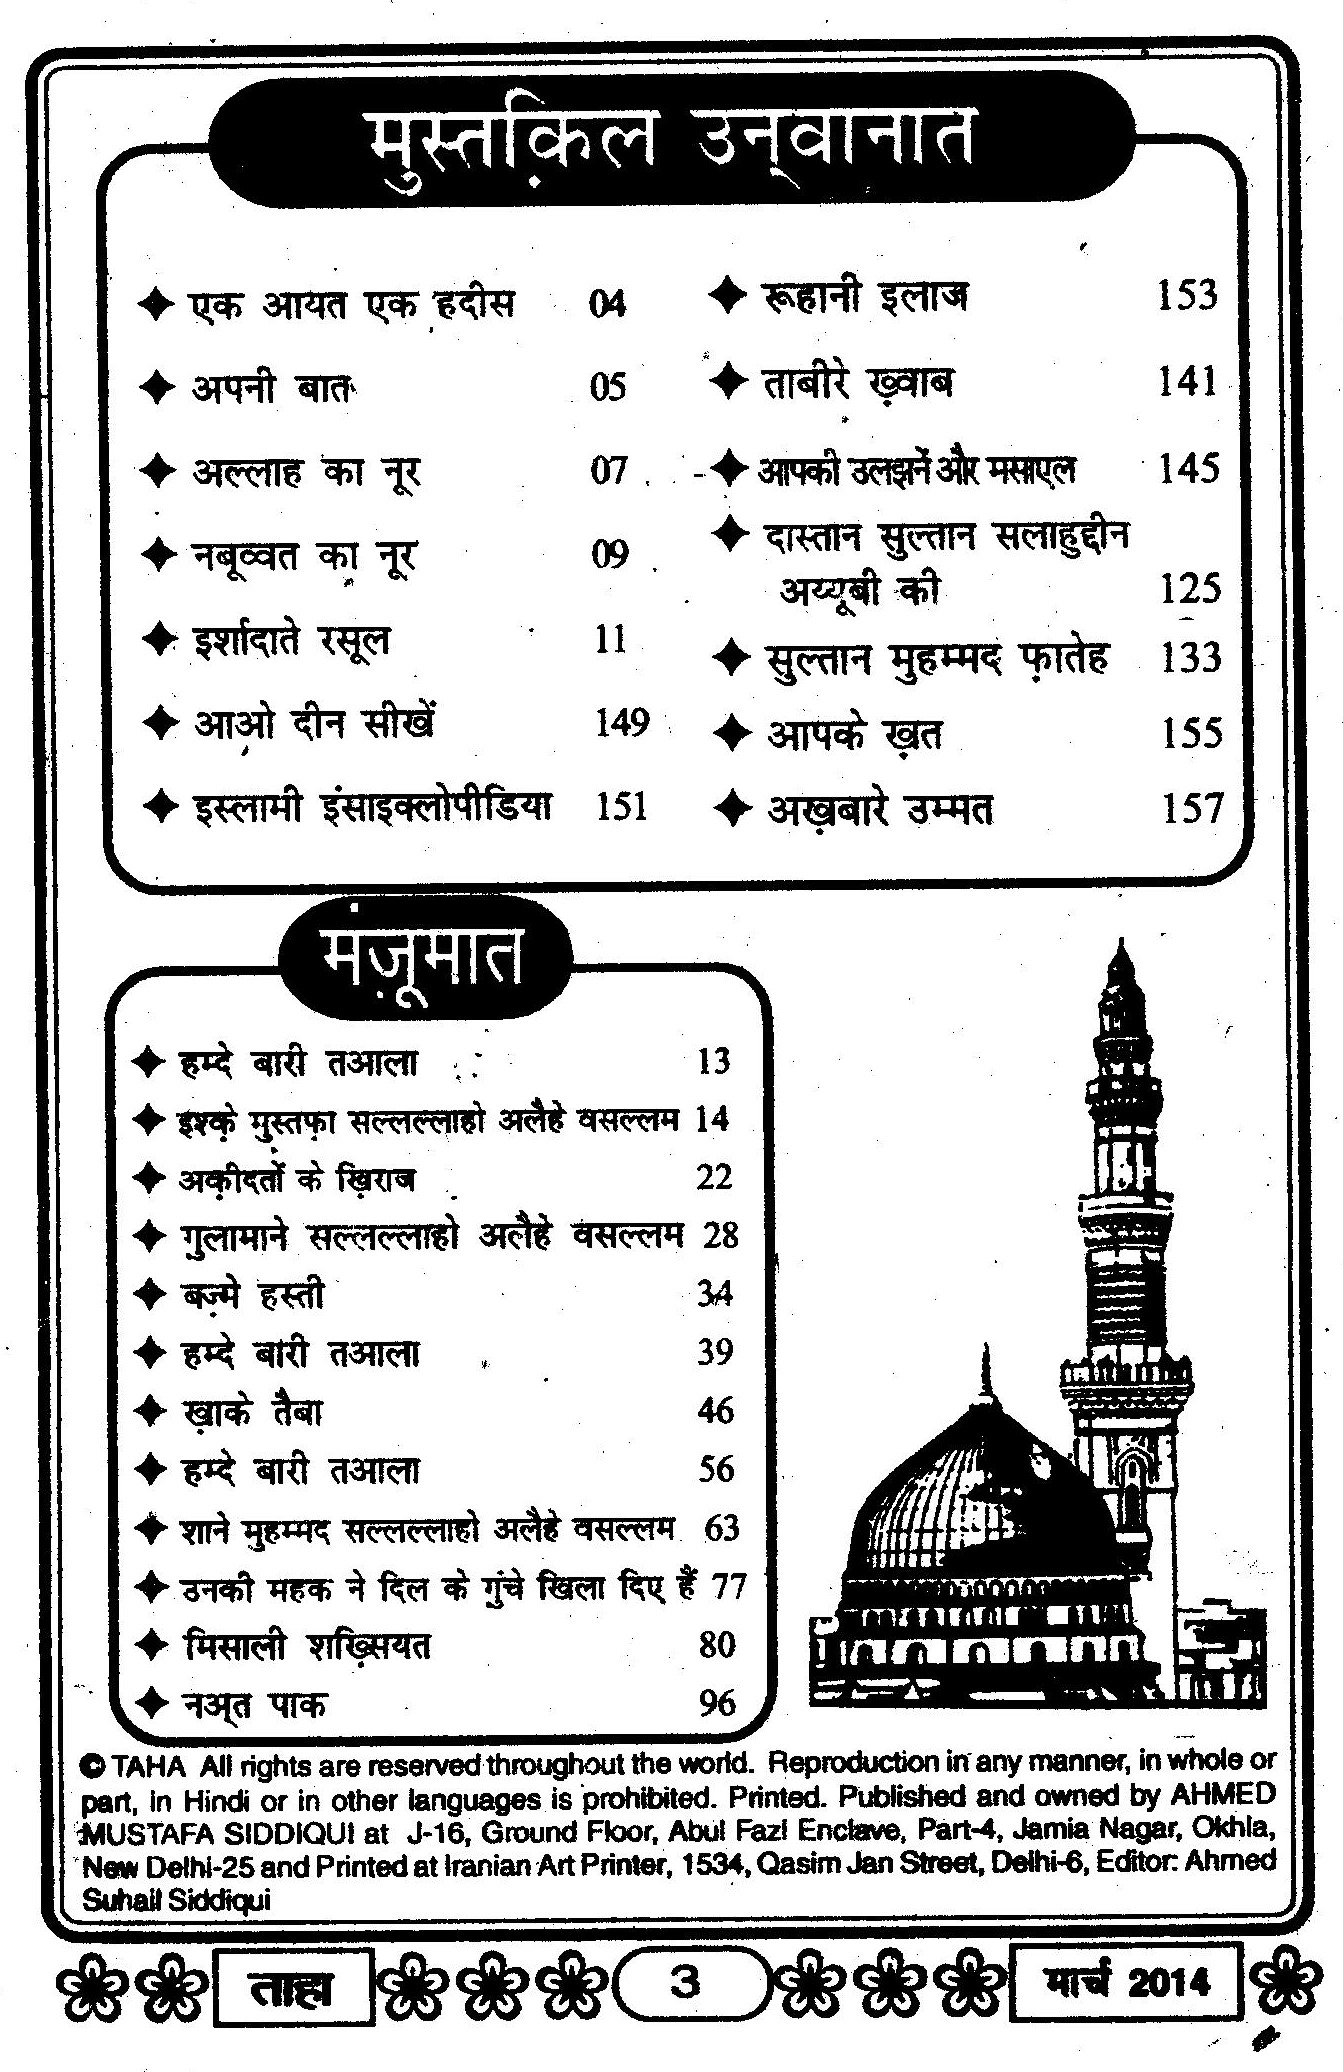 मुस्तक़िल उन्वानात
एक आयत एक हदीस 04
अपनी बात 05
अल्लाह का नूर 07
नबूव्वत का नूर 09
इर्शादाते रसूल 11
आओ दीन सीखें 149
इस्लामी इंसाइक्लोपीडिया 151
रूहानी इलाज 153
ताबीरे ख़्वाब 141
आपकी उलझनें और मसाएल 145
दास्तान सुल्तान सलाहुद्दीन
अय्यूबी की 125
सुल्तान मुहम्मद फ़ातेह 133
आपके ख़त 155
अख़बारे उम्मत 157
मंज़ूमात
हम्दे बारी तआला 13
इश्क़े मुस्तफ़ा सल्लल्लाहो अलैहे वसल्लम 14
अक़ीदतों के ख़िराज 22
गुलामाने सल्लल्लाहो अलैहे वसल्लम 28
बज़्मे हस्ती 34
हम्दे बारी तआला 39
ख़ाके तैबा 46
हम्दे बारी तआला 56
शाने मुहम्मद सल्लल्लाहो अलैहे वसल्लम 63
उनकी महक ने दिल के गुंचे खिला दिए हैं 77
मिसाली शख़्सियत 80
नअ्त पाक 96
© TAHA All rights are reserved throughout the world. Reproduction in any manner, in whole or
part, in Hindi or in other languages is prohibited. Printed. Published and owned by AHMED
MUSTAFA SIDDIQUI at J-16, Ground Floor, Abul Fazl Enclave, Part-4, Jamia Nagar, Okhla,
New Delhi-25 and Printed at Iranian Art Printer, 1534, Qasim Jan Street, Delhi-6, Editor: Ahmed
Suhail Siddiqui
ताहा 3 मार्च 2014